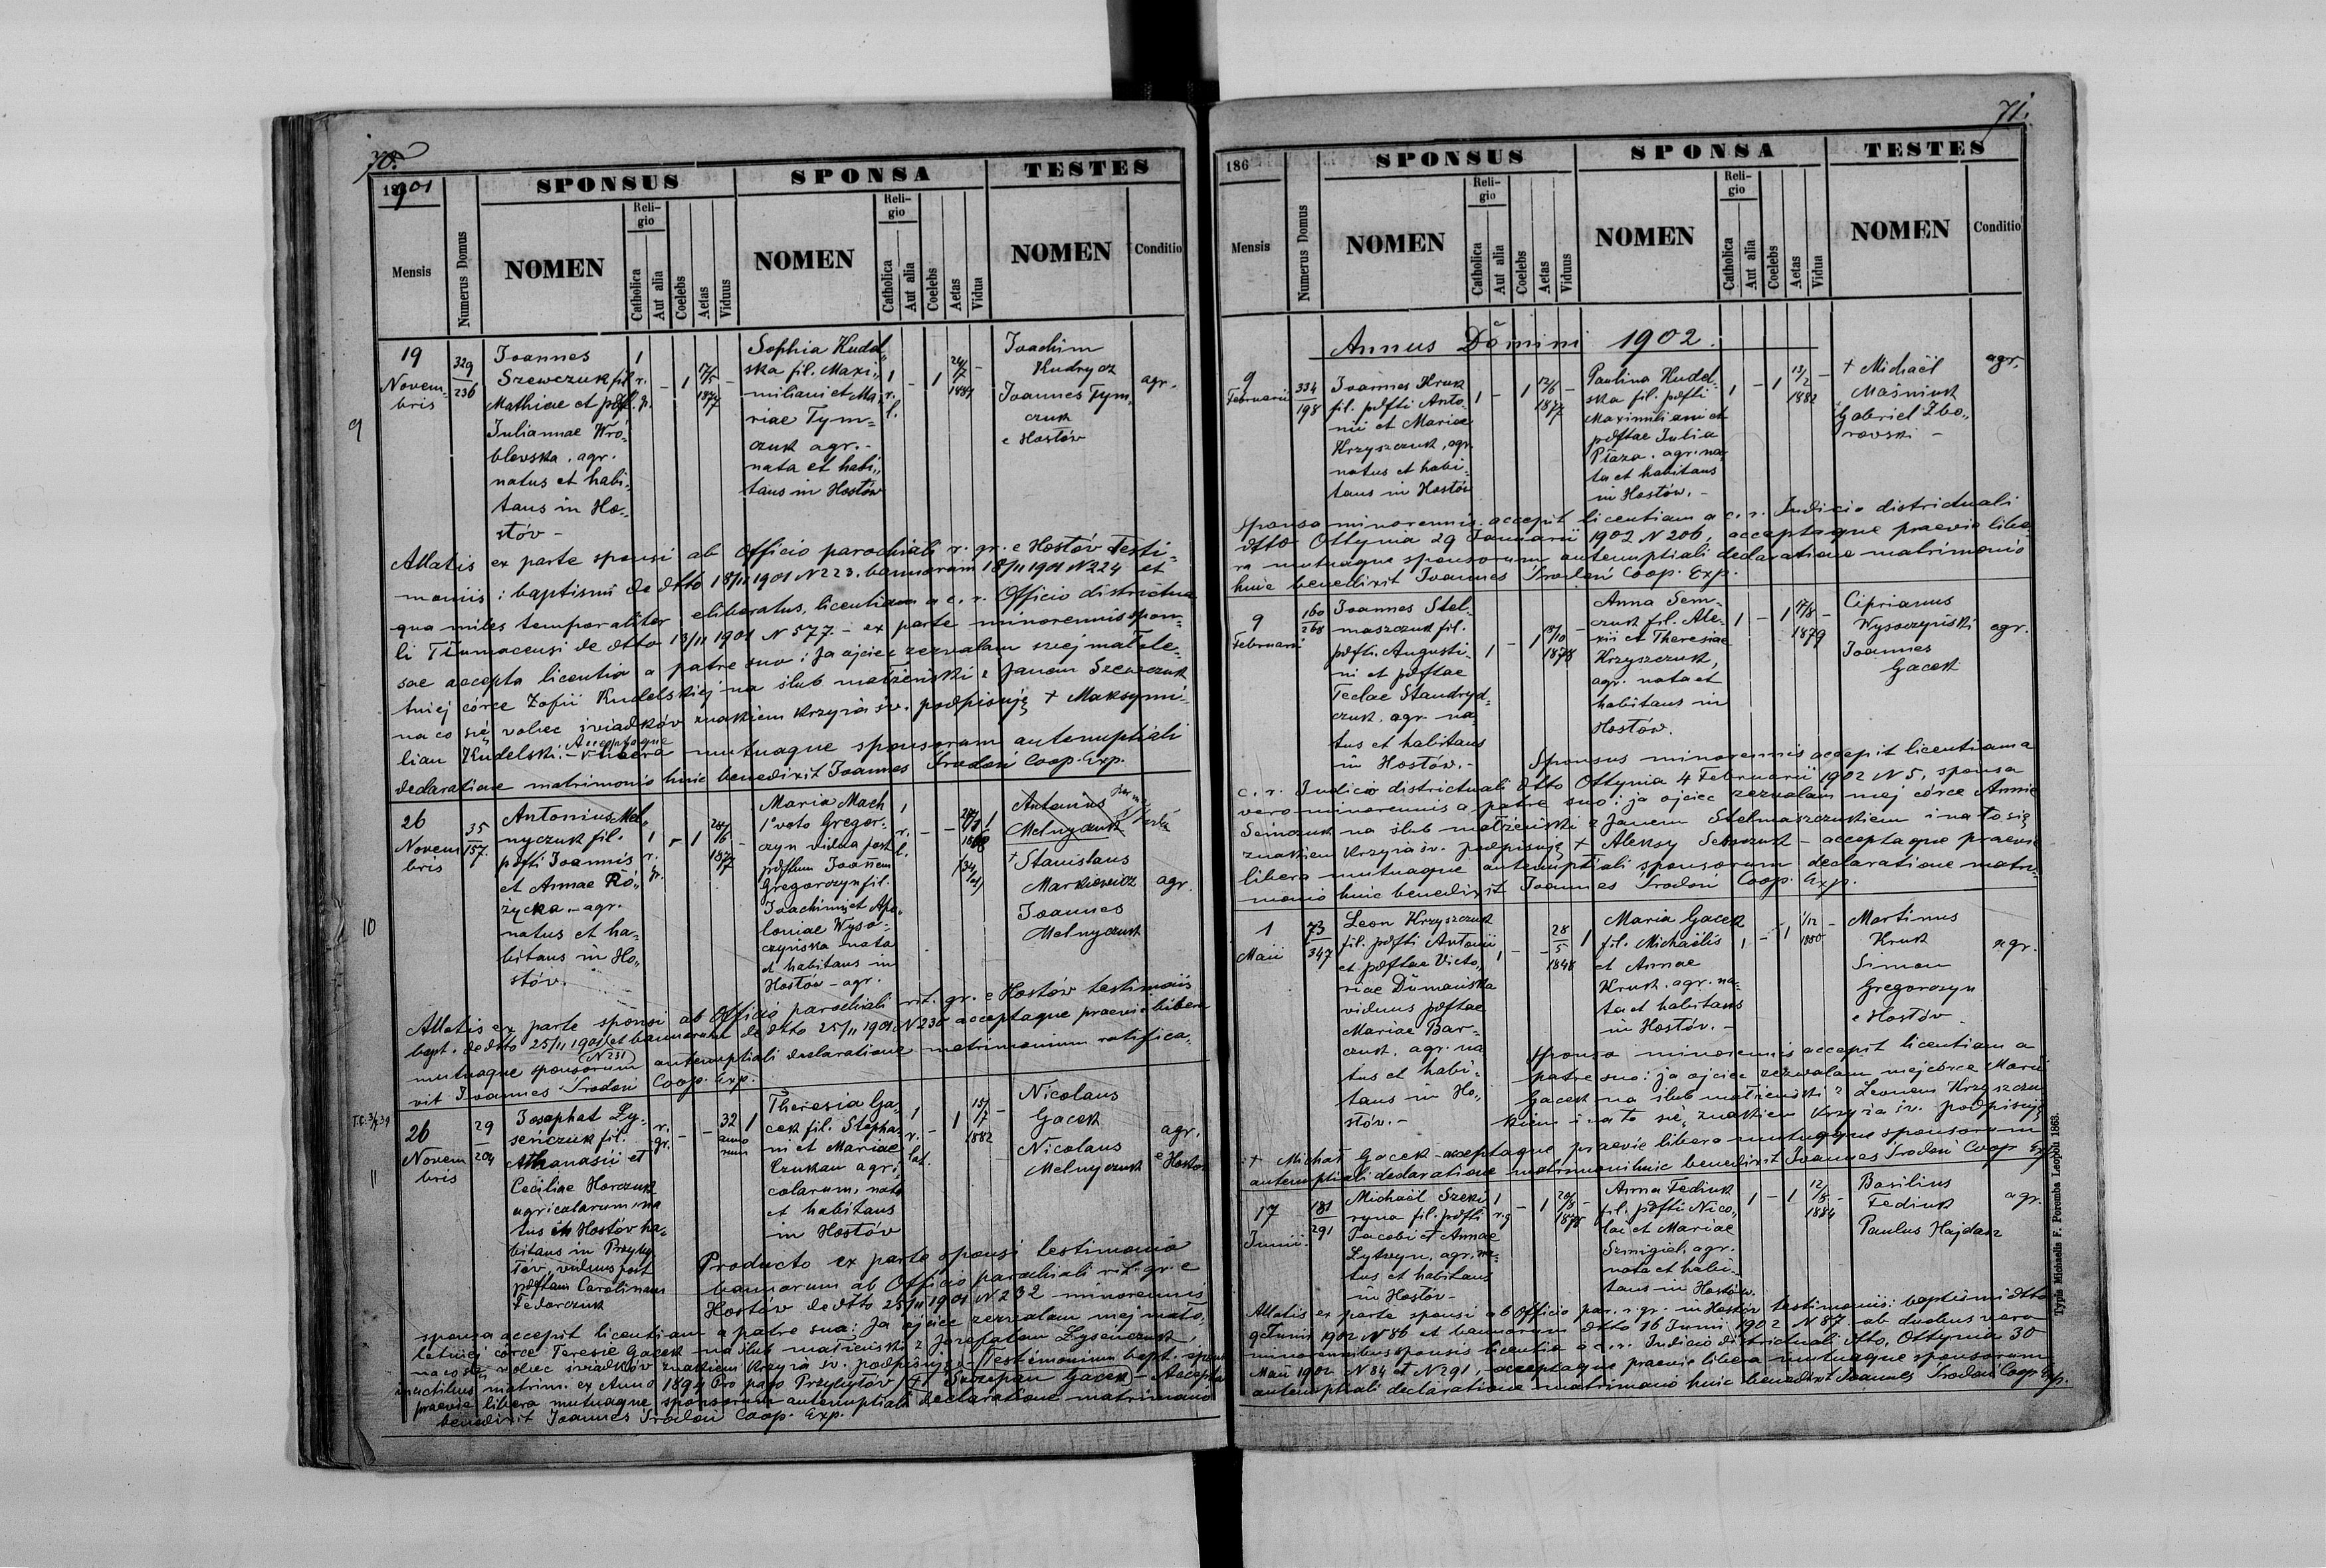 70.
1901
Mensis
Numerus Domus
SPONSUS
NOMEN
Religio
Catholica
Aut alia
Coelebs
Aetas
Viduus
SPONSA
NOMEN
Religio
Catholica
Aut alia
Coelebs
Aetas
Vidua
TESTES
NOMEN
Conditio
9
19
Novem-
bris
329
236
Joannes
Szewczuk fil.
Mathiae et pdft.
Juliannae Wró-
blewska. agr.
natus et habi-
tans in Ho-
stów -
1
r.
g.
-
1
17/5
1877
-
Sophia Kudel-
ska fil. Maxi-
miliani et Ma-
riae Tym-
czuk agr. -
nata et habi-
tans in Hostów
1
r.
l.
-
1
24/7
1884
-
Joachim
Kudrycz
Joannes Tym-
czuk
e Hostów
agr.
Allatis ex parte sponsi ab Officio parochiali r. gr. e Hostów Testi-
moniis: baptismi de dtto 18/11 1901 N 223. bannorum 18/11 1901 N 224 et
qua miles temporaliter eliberatus, licentiam a c. r. Officio districtua-
li Tłumacensi de dtto 13/11 1901 N 577. - ex parte minorennis spon-
sae accepta licentia a patre suo: Ja ojciec zezwalam swej małole-
tniej córce Zofii Kudelskiej na ślub małżeński z Janem Szewczuk
na co się wobec świadków znakiem krzyża św. podpisuję + Maksymi-
lian Kudelski. - Acceptaque libera mutuaque sponsorum antenuptiali
declaratione matrimonio huic benedixit Joannes Środoń Coop. Exp.
10
26
Novem
bris
35
157.
Antonius Mel-
nyczuk fil.
pdfti Joannis
et Annae Ró-
życka - agr.
natus et ha-
bitans in Ho-
stów.
1
r.
g.
-
1
28/6
1877
-
Maria Mach
1° voto Gregor-
czyn vidua post
pdftum Joannem
Gregorczyn fil.
Joachimi et Apo-
loniae Wyso-
czyńska nata
et habitans in
Hostów - agr.
1
r.
l.
-
-
1
Antonius
Melnyczuk
+ Stanislaus
Markiewicz
Joannes
Melnyczuk
agr.
Allatis ex parte sponsi ab Officio parochiali rit. gr. e Hostów testimoniis
bapt. de dtto 25/11 1901 et bannorum de dtto 25/11 1901 N 230 acceptaque praevie libera
N 231
mutuaque sponsorum antenuptiali declaratione matrimonium ratifica-
vit Joannes Środoń Coop. Exp.
11
26
Novem
bris
29
204
Josaphat Ły-
seńczuk fil.
Athanasii et
Ceciliae Harczuk
agricolarum, na
tus in Hostów ha-
bitans in Przyby-
łów, viduus post
pdftam Carolinam
Fedorczuk
r.
gr.
-
-
32
anno
rum
1
Theresia Ga-
cek fil. Stepha-
ni et Mariae
Czukan agri-
colarum, nata
et habitans
in Hostów
1
r.
lat.
-
1
15/7
1882
-
Nicolaus
Gacek
Nicolaus
Melnyczuk
agr.
e Hostów
Producto ex parte sponsi testimonio
bannorum ab Officio parochiali rit. gr. e
Hostów de dtto 25/11 1901 N 232 minorennis
sponsa accepit licentiam a patre suo: Ja ojciec zezwalam mej mało-
letniej córce Teresie Gacek na ślub małżeński z Jozefatem Łysenczuk,
na co się wobec świadków znakiem krzyża św. podpisuję - Testimonium bapt. sponsi
in actibus matrim. ex Anno 1894 Pro pago Przybyłów + Szczepan Gacek - Accepta
praevie libera mutuaque sponsorum antenuptiali declaratione matrimonio
benedixit Joannes Środoń Coop. Exp.
71.
186
Mensis
Numerus Domus
SPONSUS
NOMEN
Religio
Catholica
Aut alia
Coelebs
Aetas
Viduus
SPONSA
NOMEN
Religio
Catholica
Aut alia
Coelebs
Aetas
Vidua
TESTES
NOMEN
Conditio
Annus Domini 1902.
9
Februarii
334
198
Joannes Kruk
fil. pdfti Anto-
nii et Mariae
Krzyszczuk, agr.
natus et habi-
tans in Hostów
1
-
1
12/6
1877
-
Paulina Kudel-
ska fil. pdfti
Maximiliani et
pdftae Julia
Płaza. agr. na
ta et habitans
in Hostów. -
1
-
1
13/2
1882
-
+ Michaël
Maśniuk
Gabriel Zbo-
rowski -
agr.
Sponsa minorennis accepit licentiam a c. r. Judicio districtuali
dtto Ottynia 29 Januarii 1902 N 206, acceptaque praevie libe-
ra mutuaque sponsorum antenuptiali declaratione matrimonio
huic benedixit Joannes Środoń Coop. Exp.
9
Februarii
160
268
Joannes Stel-
maszczuk fil.
pdfti Augusti-
ni et pdftae
Teclae Standryd-
czuk. agr. na-
tus et habitans
in Hostów. -
1
-
1
18/10
1878
-
Anna Sem-
czuk fil. Ale-
xii et Theresiae
Krzyszczuk,
agr. nata et
habitans in
Hostów.
1
-
1
17/8
1879
-
Ciprianus
Wysoczyński
Joannes
Gacek
agr.
Sponsus minorennis accepit licentiam a
c. r. Judicio districtuali dtto Ottynia 4 Februarii 1902 N 5, sponsa
vero minorennis a patre suo: ja ojciec zezwalam mej córce Annie
Semczuk na ślub małżeński z Janem Stelmaszczukiem i na to się
znakiem krzyża św. podpisuję + Aleksy Semczuk - acceptaque praevie
libera mutuaque antenuptiali sponsorum declaratione matri-
monio huic benedixit Joannes Środoń Coop. Exp.
1
Maii
73
347
Leon Krzyszczuk
fil. pdfti Antonii
et pdftae Victo-
riae Dumańska
viduus pdftae
Mariae Bar-
czuk. agr. na
tus et habi-
tans in Ho-
stów. -
1
-
-
28/5
1848
1
Maria Gacek
fil. Michaëlis
et Annae
Kruk. agr. na-
ta et habitans
in Hostów. -
1
-
1
1/12
1880
-
Martinus
Kruk
Simon
Gregorczyn
e Hostów
agr.
Sponsa minorennis accepit licentiam a
patre suo: ja ojciec zezwalam mej córce Marii
Gacek na ślub małżeński z Leonem Krzyszczu-
kiem i na to się znakiem krzyża św. podpisuję
+ Michał Gacek - acceptaque praevie libera mutuaque sponsorum
antenuptiali declaratione matrimoni huic benedixit Joannes Środoń Coop. Exp.
17
Junii.
181
291
Michaël Szeki-
ryna fil. pdfti
Jacobi et Annae
Lytwyn, agr. na-
tus et habitans
in Hostów -
1
r. g
-
1
-
Anna Fediuk
fil. pdfti Nico-
lai et Mariae
Szmigiel. agr.
nata et habi-
tans in Hostów.
1
-
1
12/5
1884
-
Basilius
Fediuk
Paulus Hajdasz
agr.
Allatis ex parte sponsi ab Officio par. r. gr. in Hostów testimoniis: baptismi dtto
9 Junii 1902 N 86 et bannorum dtto 16 Junii 1902 N 87. ab duobus vero
minorennibus sponsis licentia a c. r. Judicio districtuali dtto, Ottynia 30
Maii 1902 N 84 et N 291, - acceptaque praevie libera mutuaque sponsorum
antenuptiali declaratione matrimonio huic benedixit Joannes Środoń Coop Exp.
Typis Michaelis F. Poremba Leopoli 1863.